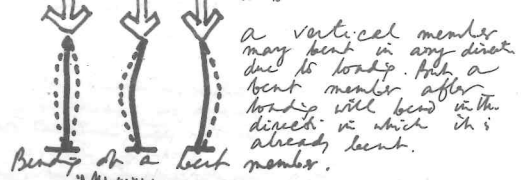 a vertical member
may bent in any direct.
due to loading. But a
bent member after
loading will bend in the
directi in which it is
already bent.
Bending of a bent member.